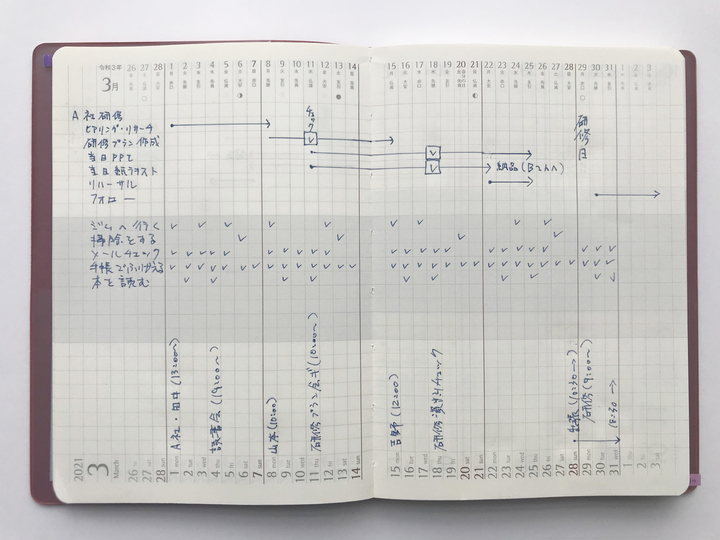 令和3年
3月
26 27 28 1 2 3 4 5 6 7 8 9 10 11 12 13 14 15 16 17 18 19 20 21 22 23 24 25 26 27 28 29 30 31 1 2 3
A社研修
ヒアリング・リサーチ
研修プラン作成
チェック
当日PPT
当日紙テキスト
納品(Bさんへ)
リハーサル
フォロー
研修日
ジムへ行く
掃除をする
メールチェック
手帳でふりかえる
本を読む
A社・田中(13:00〜)
読書会(19:00〜)
山本(10:00)
研修プラン会議(10:00〜)
吉野(12:00)
研修資料チェック
出張(10:30→)
研修(9:00〜)
18:30→
2021
3
March
26 fri 27 sat 28 sun 1 mon 2 tue 3 wed 4 thu 5 fri 6 sat 7 sun 8 mon 9 tue 10 wed 11 thu 12 fri 13 sat 14 sun 15 mon 16 tue 17 wed 18 thu 19 fri 20 sat 21 sun 22 mon 23 tue 24 wed 25 thu 26 fri 27 sat 28 sun 29 mon 30 tue 31 wed 1 2 3